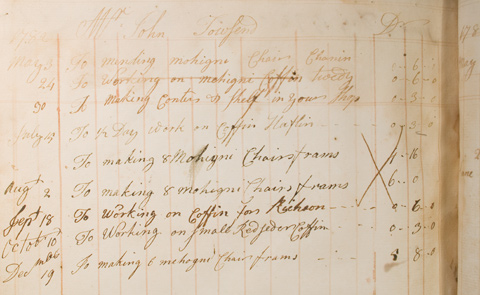 Mr John Townsend Dr
178
May 3 To mending mohigne Chair 0 - 6 - 0
24 To Working on mohigne Coffin 0 - 6 - 0
30 A making Conter & Shelf in your Shop 0 - 3 - 0
July To ½ Day work on Coffin 0 - 3 - 0
To making 8 Mohigne Chairs frams 16
Augt 2 To making 8 mohigne Chairs frams 6 - 0
Sept 18 To Working on Coffin for 0 - 6 - 0
Octobr 10 To Working on Small Redseder Coffin 0 - 3 - 0
Decmbr 19 To making 6 mehogne Chair frams 8 - 0